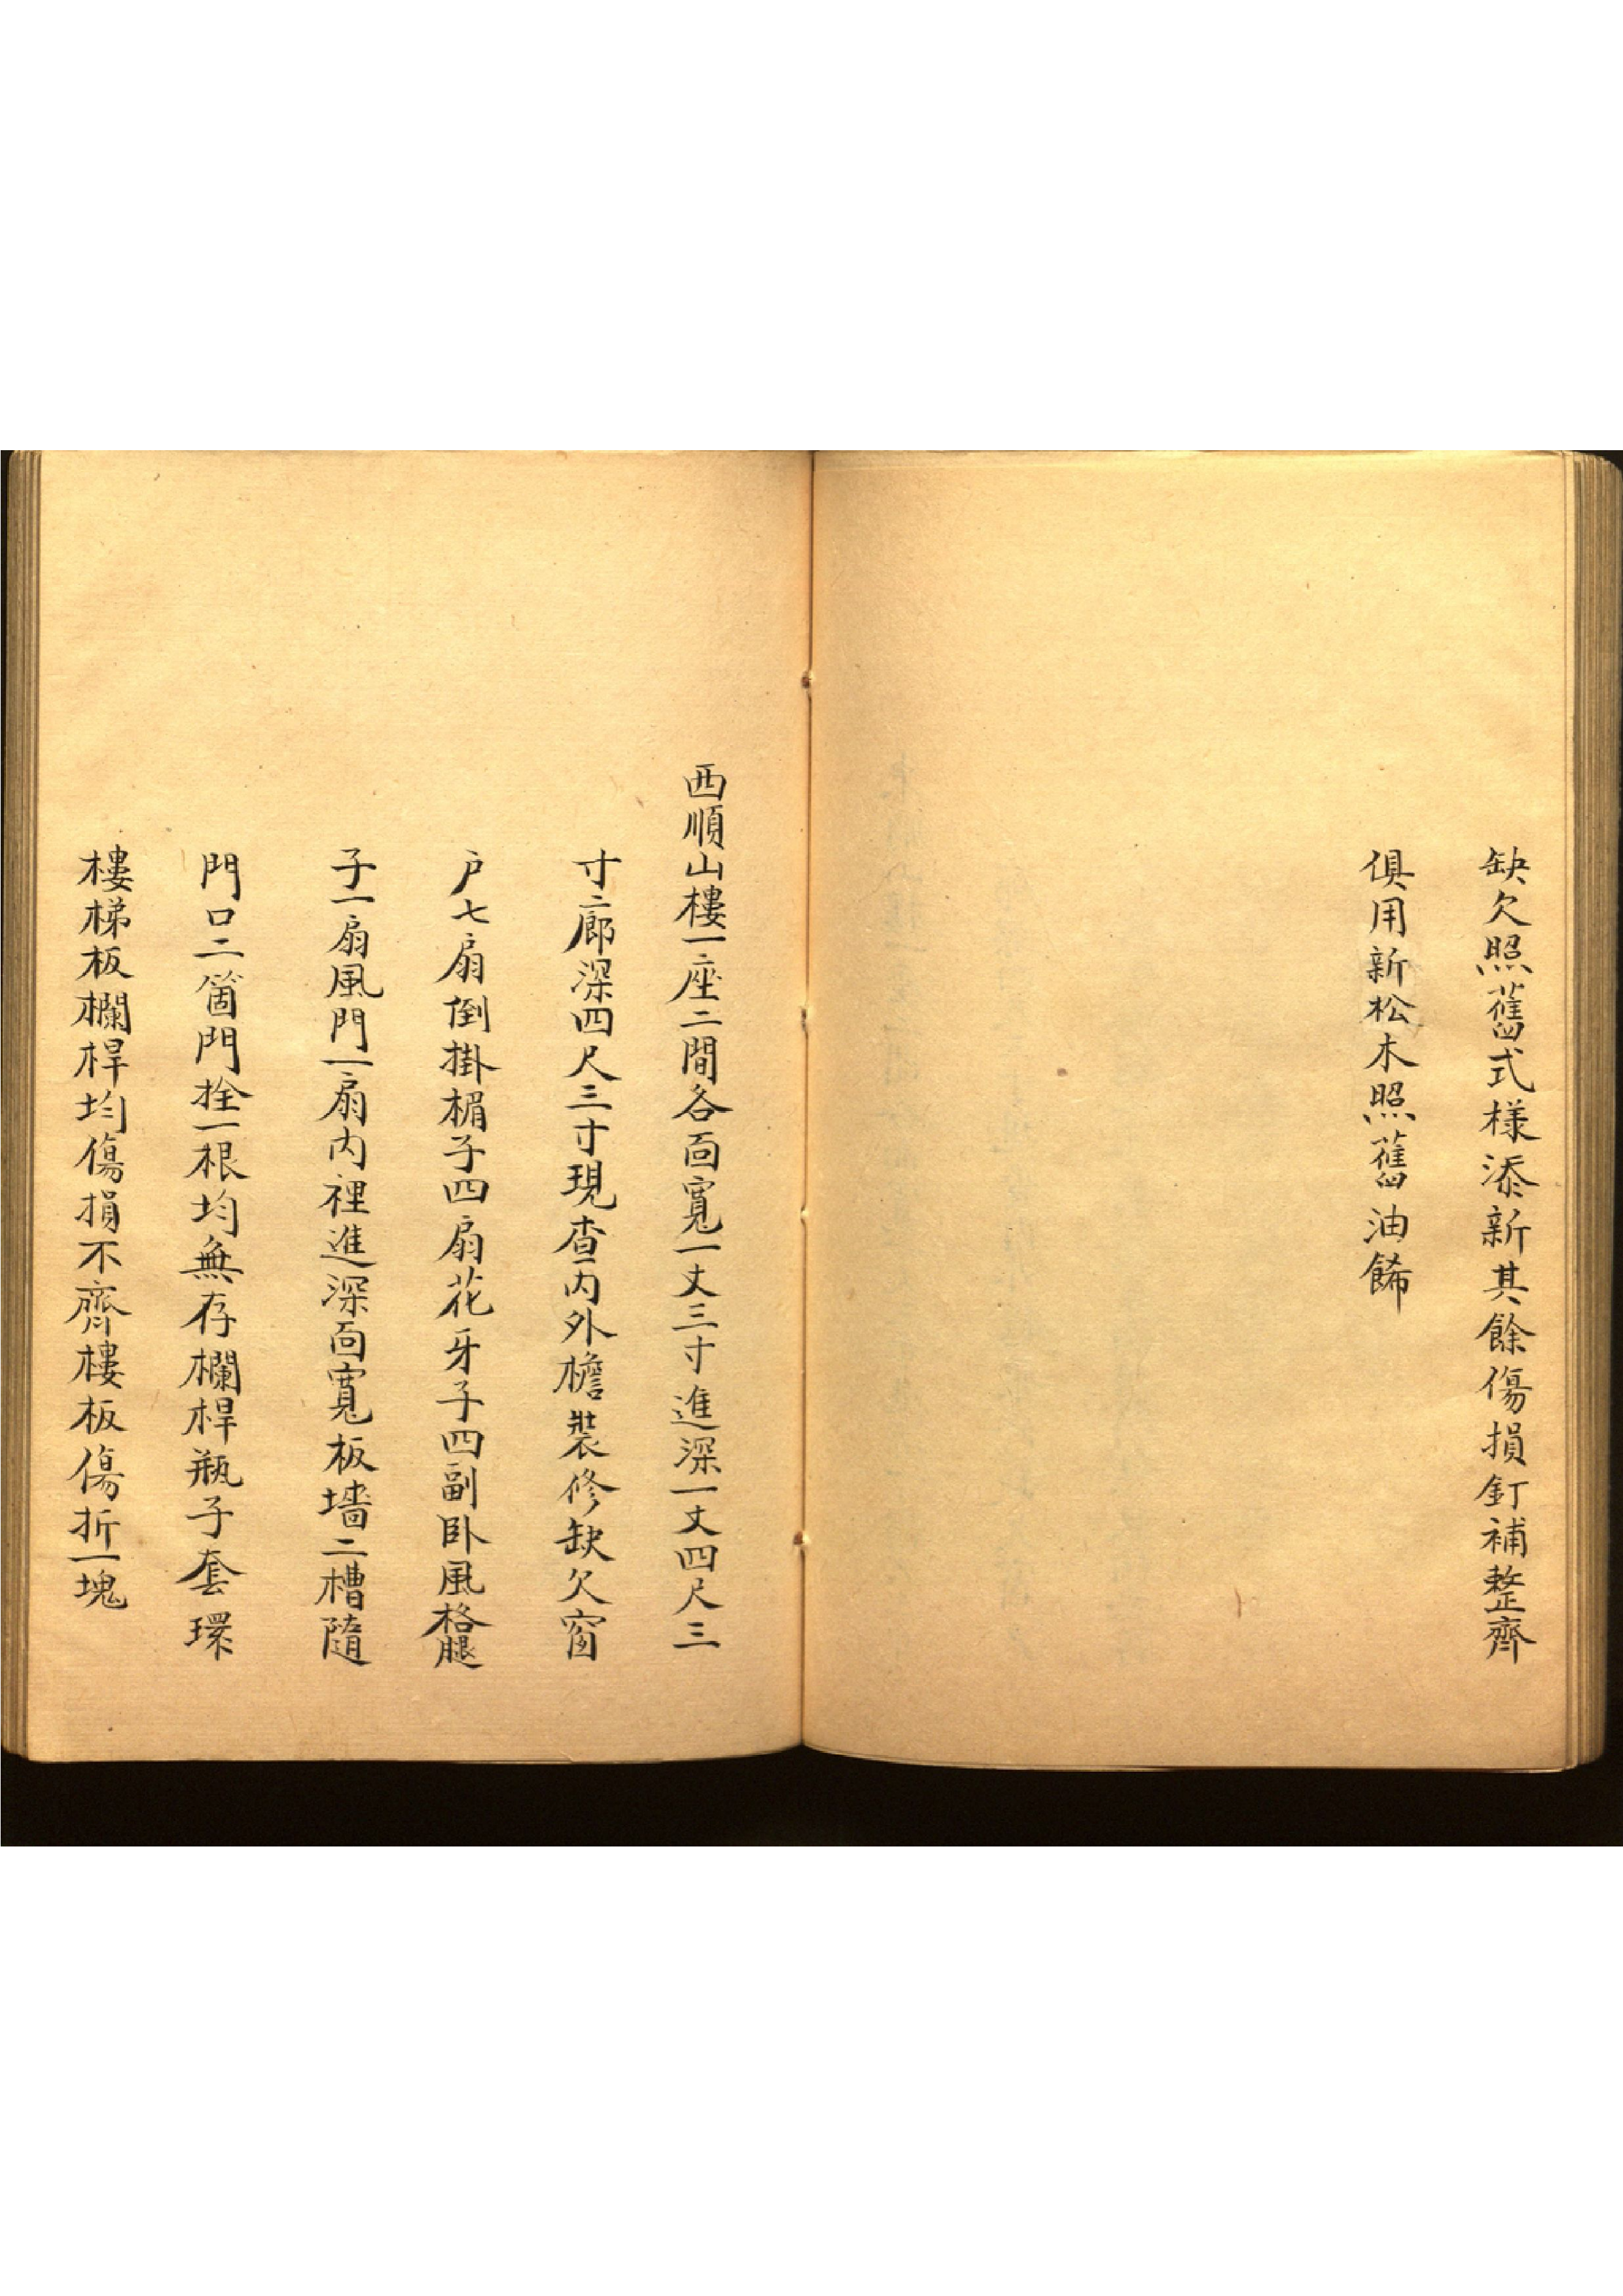 缺欠照舊式樣添新其餘傷損釘補整齊
俱用新松木照舊油餙
西順山樓一座二間各面寬一丈三寸進深一丈四尺三
寸二廊深四尺三寸現查内外檐裝修缺欠窗
户七扇倒掛楣子四扇花牙子四副卧風槅腿
子一扇風門一扇内裡進深面寬板墻二槽隨
門口二箇門拴一根均無存欄桿瓶子套環
樓梯板欄桿均傷損不齊樓板傷折一塊